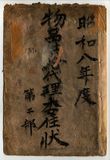 昭和八年度
物品代理委任状
第二部